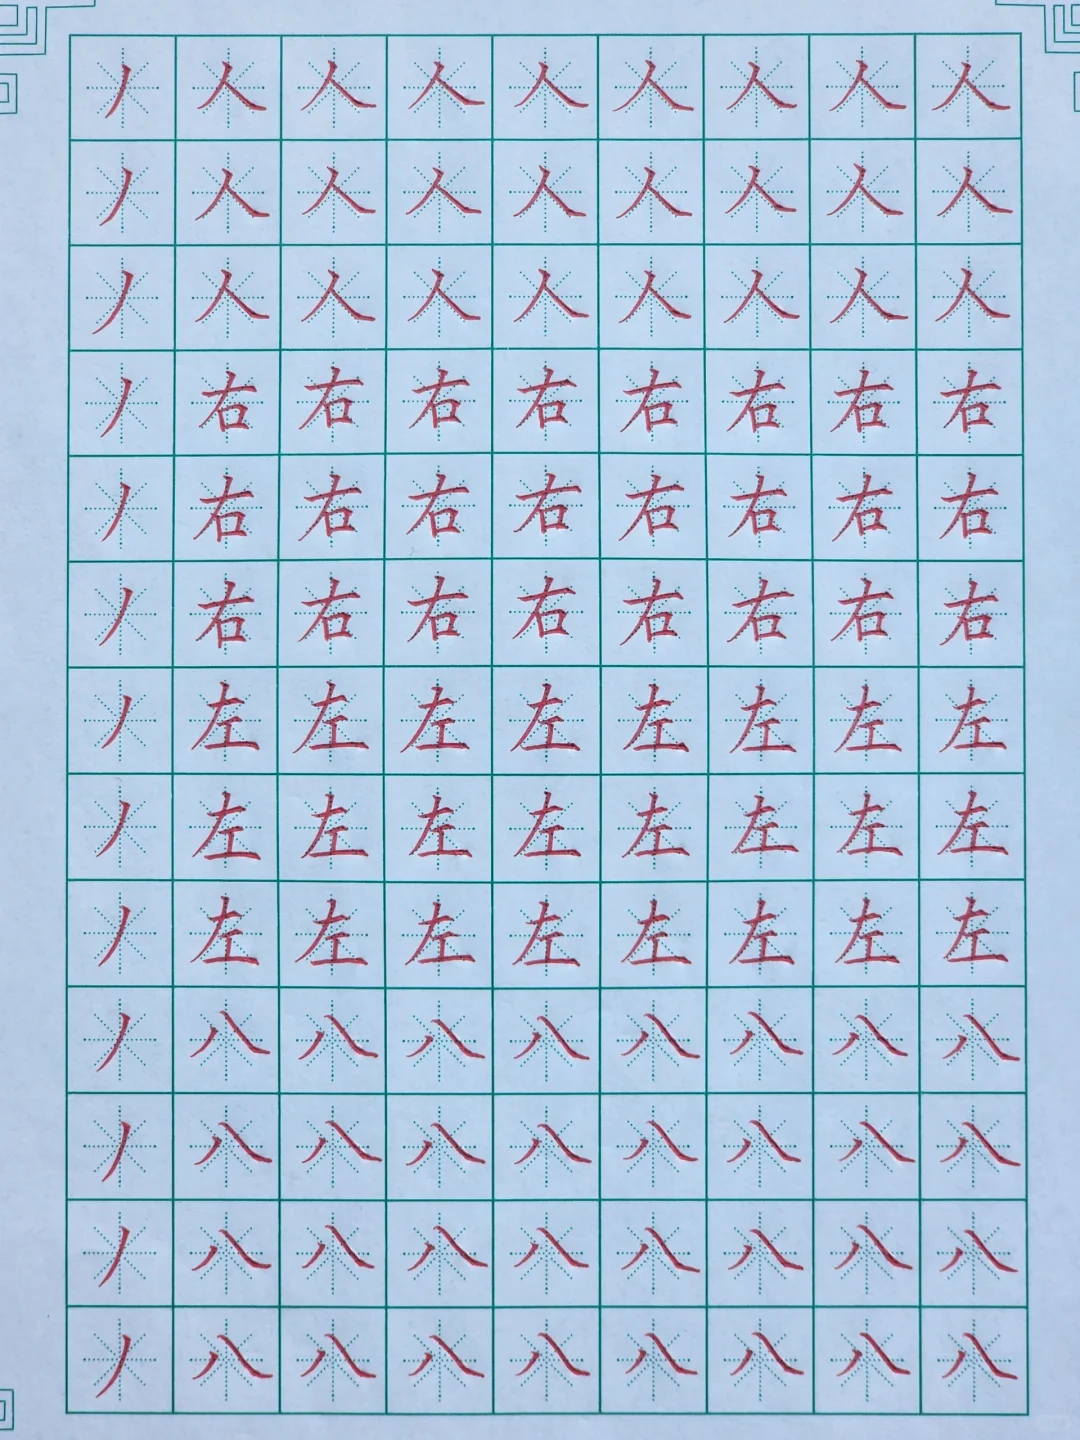 丿人人人人人人人人
丿人人人人人人人人
丿人人人人人人人人
丿右右右右右右右右
丿右右右右右右右右
丿右右右右右右右右
丿左左左左左左左左
丿左左左左左左左左
丿左左左左左左左左
丿八八八八八八八八
丿八八八八八八八八
丿八八八八八八八八
丿八八八八八八八八